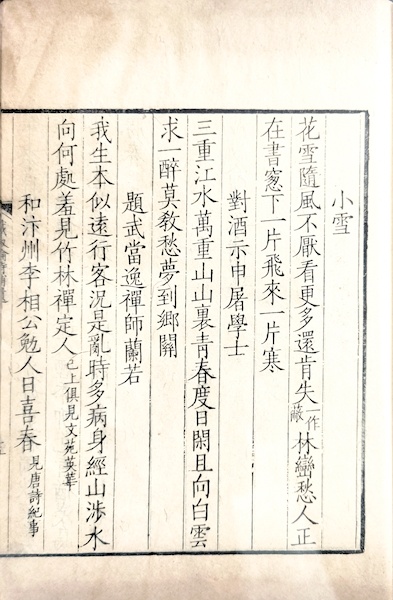 小雪
花雪隨風不厭看更多還肯失一作蔽林巒愁人正
在書窓下一片飛來一片寒
對酒示申屠學士
三重江水萬重山山裏青春度日閑且向白雲
求一醉莫敎愁夢到鄉關
題武當逸禪師蘭若
我生本似遠行客況是亂時多病身經山涉水
向何處羞見竹林禪定人已上俱見文苑英華
和汴州李相公勉人日喜春見唐詩紀事